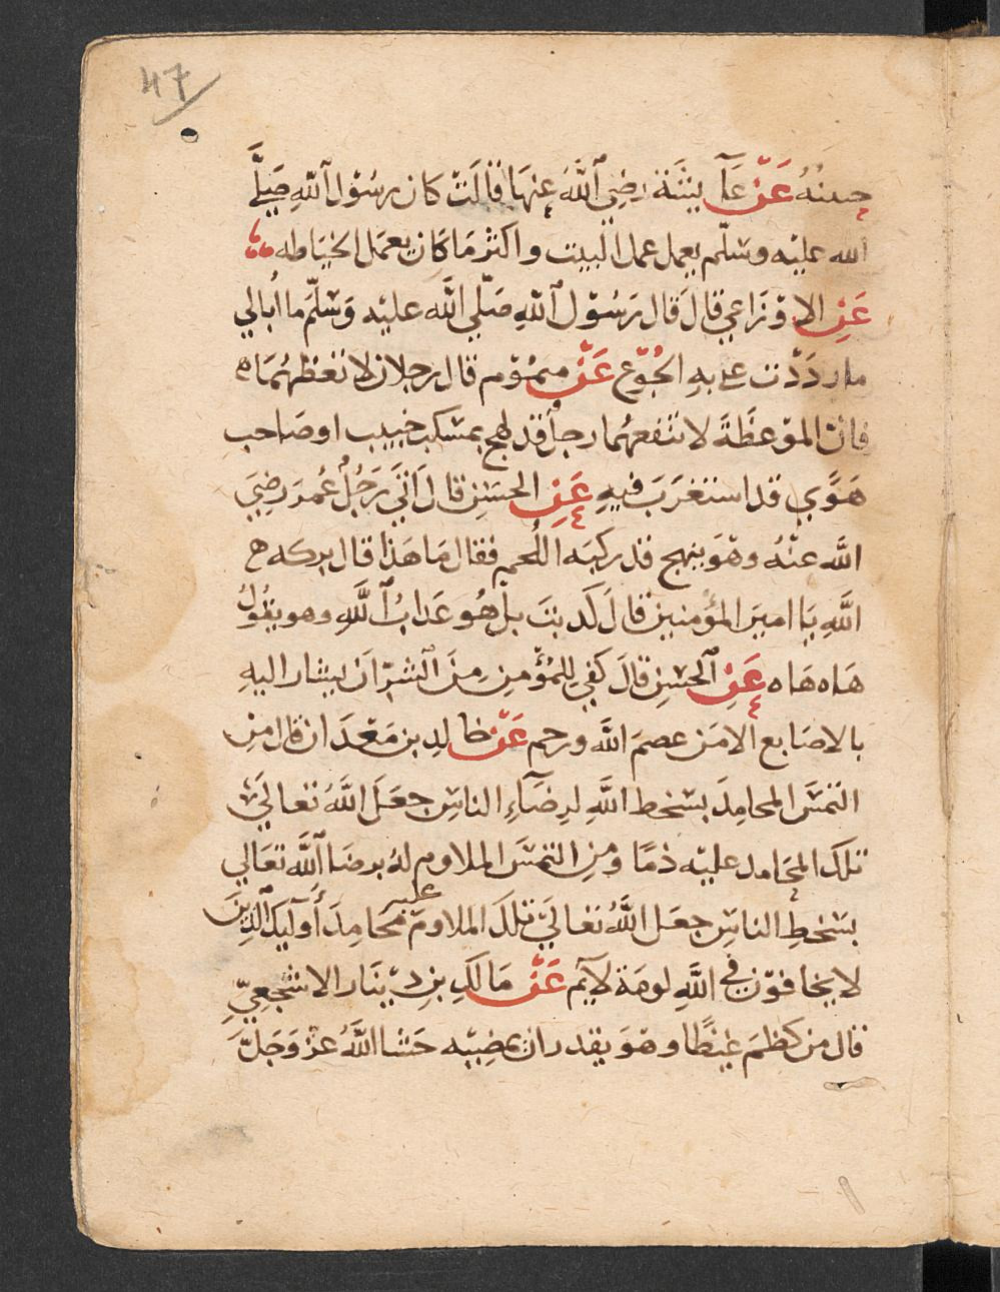 47
حسنُهُ عَنْ عَآيشَة رضِي ٱللَّهُ عنهَا قالَتْ كان رسُوْل ٱللّهِ صَلَّے
الله عليْه وسَلّم يعمل عمل البيت واكثر مَا كَان يعمَل الخيَاطه
عَنِ الاوْزَاعي قالَ قال رَسُوْل ٱللّهِ صَلّي اللَّه عليْه وَسَلّمَ ما اُبالي
ما رددْت علے بهِ الجُوْع عَنْ ميمُوْم قال رجلان لا تعظهُمَا ه
فان المَوْعظَةَ لا تنفعهُما رجل قد لهج بمَكسب خبيب او صَاحب
هَوًي قد استغرَبَ فيهِ عَنِ الحسَنِ قال اَتَي رَجُلٌ عُمرَ رَضِيَ
اللَّه عنْهُ وهوَ ينهج قد ركبَه اللُّحم فقال مَا هَذا قال بركه ه
اللَّهِ يَا اميرَ المُؤمنين قالَ كَدبتَ بل هُو عَدابُ ٱللَّهِ وهو يقُولُ
هَاه هَاه عَنِ ٱلحسَنِ قالَ كفي للمُؤْمن مِنَ ٱلشرّ اَن يشار اليهِ
بالاصَابع الا مَن عصمَ اللَّه ورحم عَنْ خالدِ بن مَعْدَان قال مَنِ
التمسَ المحامِدَ بسَخط اللَّهِ لرِضَآءِ الناسِ جعَلَ اللَّهُ تعاليَ
تلكَ المحَامد عليْه ذمًا ومَنِ التمسَ الملاوم لهُ برضَا ٱللَّه تعَالي
بسَخطِ الناسِ جعَل اللَّهُ تعاليَ تلكَ الملاومَ عليه محَامِدَ أُولَيكَ ٱلذِينَ
لا يخافوْن في اللَّهِ لومَة لآيم عَنْ مَالكِ بنِ ديْنَار الاشجعِيِّ
قال من كظمَ غيظًا وهوَ يقدر ان يمضِيْه حَشا اللَّهُ عزّ وَجَلّ